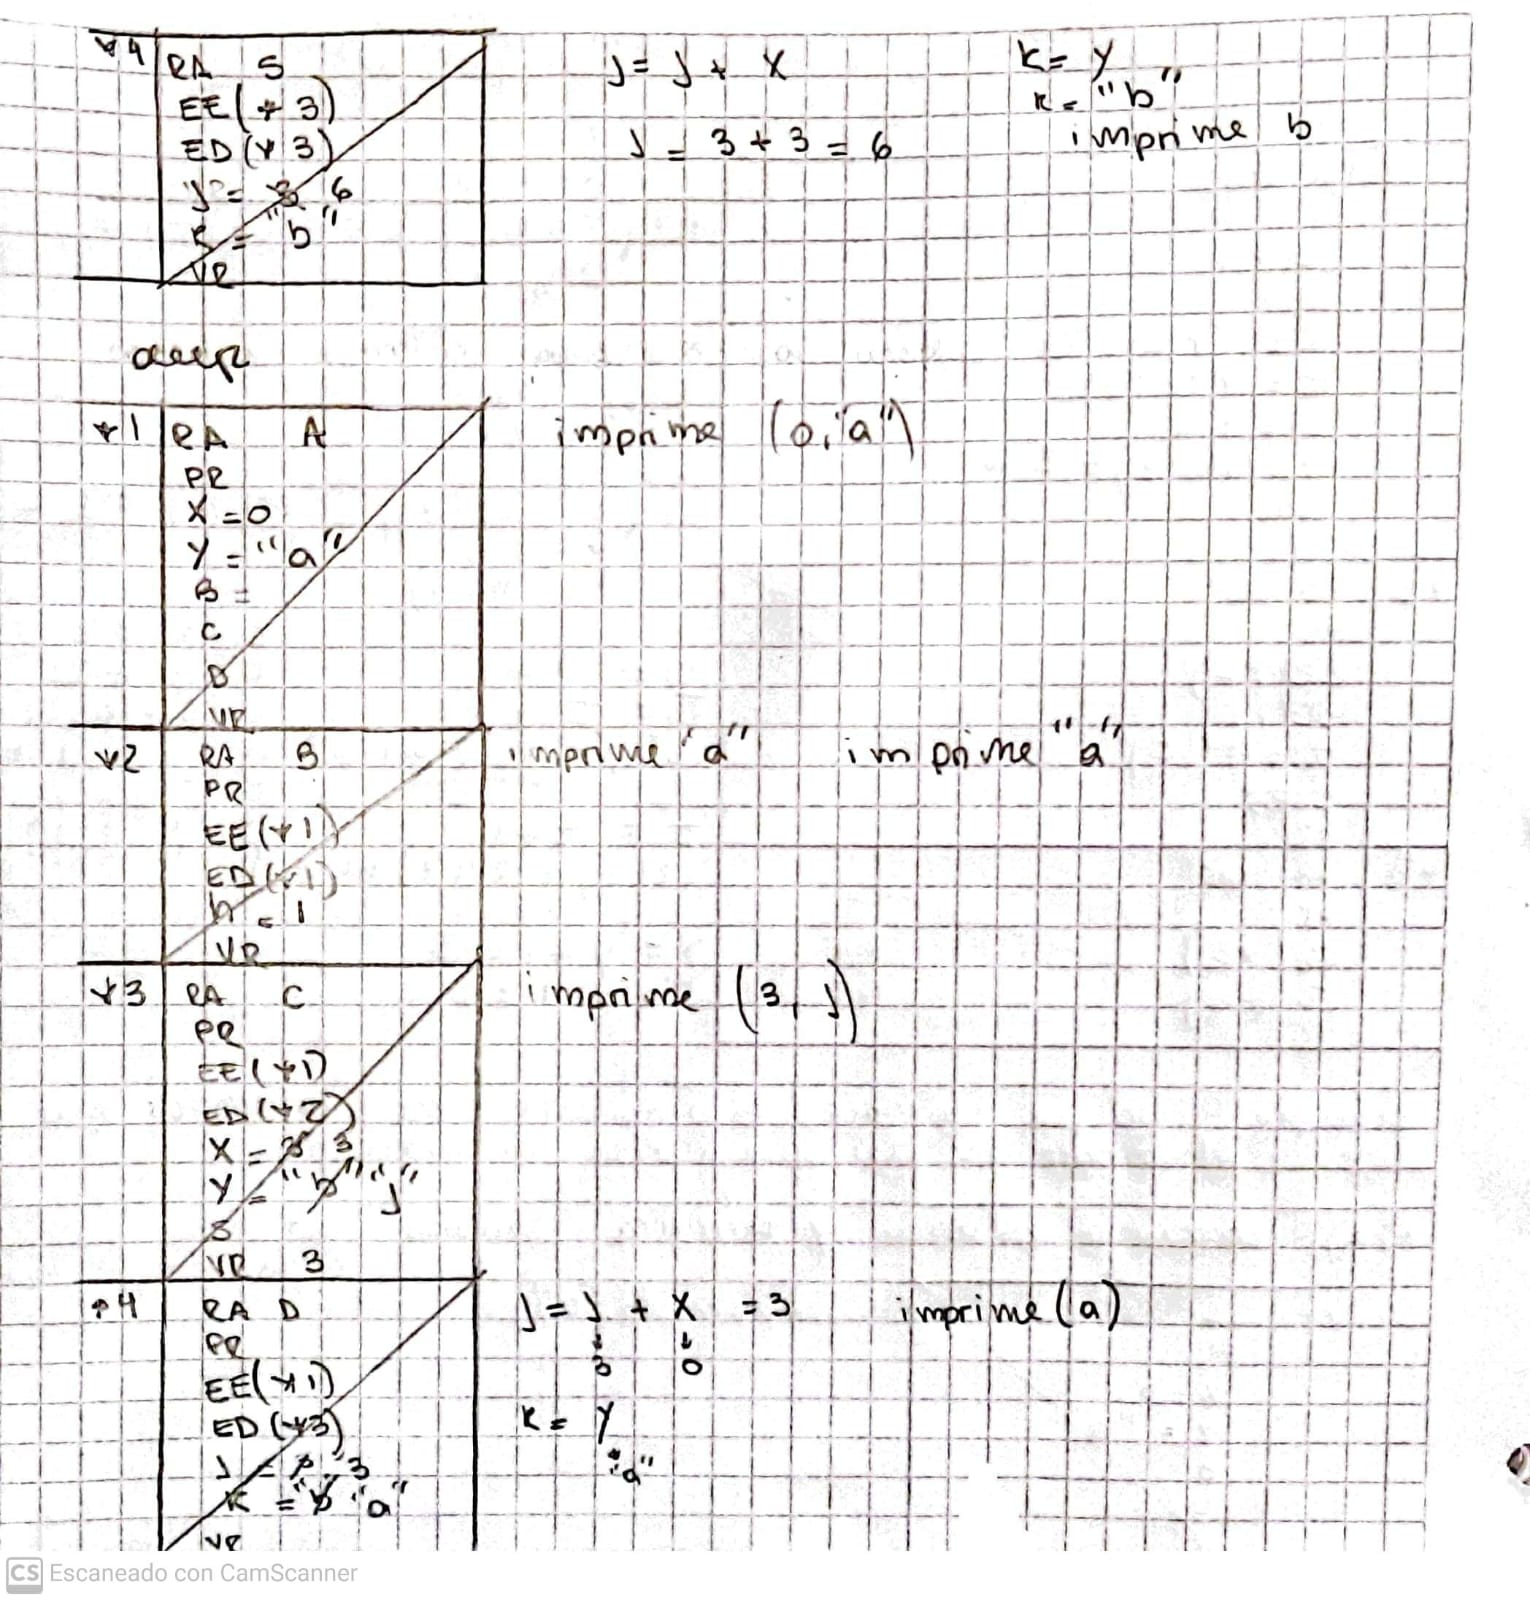 *4 RA S
EE(*3)
ED(*3)
J = 3 6
K = "b"
VR
J = J + X
J = 3 + 3 = 6
K = Y
K = "b"
imprime b
deep
*1 RA A
PR
X = 0
Y = "a"
B =
C
D
VR
imprime (0,"a")
*2 RA B
PR
EE(*1)
ED(*1)
h = 1
VR
imprime "a" imprime "a"
*3 RA C
PR
EE(*1)
ED(*2)
X = 3
Y = "b" "j"
S
VR 3
imprime (3, j)
*4 RA D
PR
EE(*1)
ED(*3)
J = 3
K = "b" "a"
VR
J = J + X = 3 imprime (a)
3 0
K = Y
"a"
CS Escaneado con CamScanner